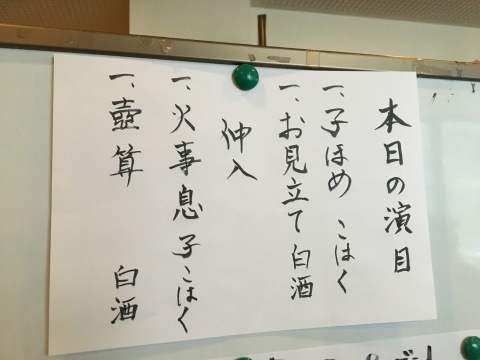 本日の演目
一、子ほめ こはく
一、お見立て 白酒
仲入
一、火事息子 こはく
一、壺算 白酒